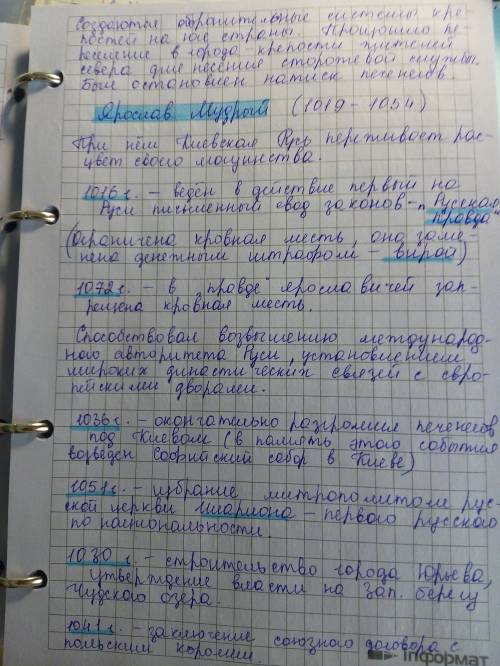 Создаются охранительные системы кре-
постей на юге страны. Произошло пе-
реселение в города-крепости жителей
севера для несения сторожевой службы.
Был остановлен натиск печенегов.
Ярослав Мудрый (1019-1054)
При нём Киевская Русь переживает рас-
цвет своего могущества.
1016 г. - ведён в действие первый на
Руси письменный свод законов - "Русская
Правда"
(ограничена кровная месть, она заме-
нена денежным штрафом - вирой)
1072 г. - в "правде" Ярославичей зап-
рещена кровная месть.
Способствовал возвышению международ-
ного авторитета Руси, установлением
широких династических связей с евро-
пейскими дворами.
1036 г. - окончательно разгромлен печенегов
под Киевом (в память этого события
возведен Софийский собор в Киеве)
1051 г. - избрание митрополитом рус-
ской церкви Илариона - первого русского
по национальности.
1030 г. - строительство города Юрьева,
Утверждение власти на зап. берегу
Чудского озера.
1041 г. - заключение союзного договора с
польским королем
информат